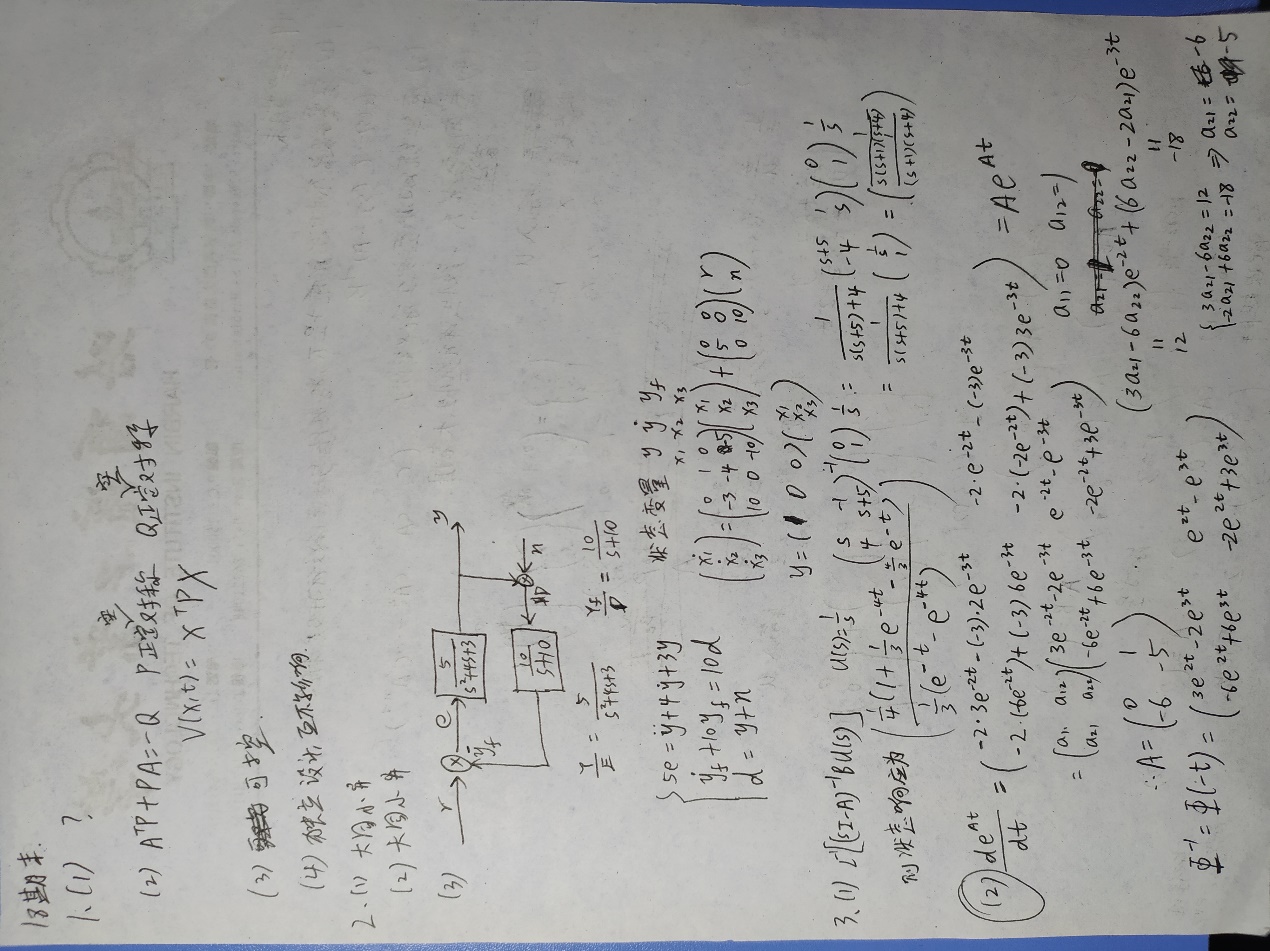 18期末.
1.(1) ?
(2) AᵀP+PA=-Q P实正定对称 Q实正定对称
V(x,t)= XᵀPX
(3) 可控.
(4) 独立设计,互不影响.
2.(1) 大同小异
(2) 大同小异
(3) r e 5/(s²+4s+3) y
ȳf 10/(s+10) D n
Y/E = 5/(s²+4s+3) Yf/D = 10/(s+10)
{5e = ÿ+4ẏ+3y 状态变量 y ẏ yf
x₁ x₂ x₃
ẏf+10yf=10d
d = y+n
(ẋ₁; ẋ₂; ẋ₃) = (0 1 0; -3 -4 -5; 10 0 -10)(x₁; x₂; x₃) + (0 0; 5 0; 0 10)(r; n)
y=(1 0 0)(x₁; x₂; x₃)
3.(1) L⁻¹[(sI-A)⁻¹BU(s)] U(s)=1/s (s -1; 4 s+5)⁻¹(0; 1) 1/s = 1/(s(s+5)+4) (s+5 1; -4 s)(0; 1) 1/s
= 1/(s(s+5)+4) (1/s; 1) = (1/(s(s+1)(s+4)); 1/((s+1)(s+4)))
则状态响应为 (1/4(1+1/3e^(-4t)-4/3e^(-t)); 1/3(e^(-t)-e^(-4t)))
(2) de^(At)/dt = (-2·3e^(-2t)-(-3)·2e^(-3t) -2·e^(-2t)-(-3)e^(-3t); -2·(-6e^(-2t))+(-3)6e^(-3t) -2·(-2e^(-2t))+(-3)3e^(-3t)) = Ae^(At)
= (a₁₁ a₁₂; a₂₁ a₂₂)(3e^(-2t)-2e^(-3t) e^(-2t)-e^(-3t); -6e^(-2t)+6e^(-3t) -2e^(-2t)+3e^(-3t)) a₁₁=0 a₁₂=1
∴A=(0 1; -6 -5) (3a₂₁-6a₂₂)e^(-2t)+(6a₂₂-2a₂₁)e^(-3t)
= 12 = -18
Φ⁻¹=Φ(-t)=(3e^(2t)-2e^(3t) e^(2t)-e^(3t); -6e^(2t)+6e^(3t) -2e^(2t)+3e^(3t))
{3a₂₁-6a₂₂=12; -2a₂₁+6a₂₂=-18 ⇒ a₂₁=-6 a₂₂=-5